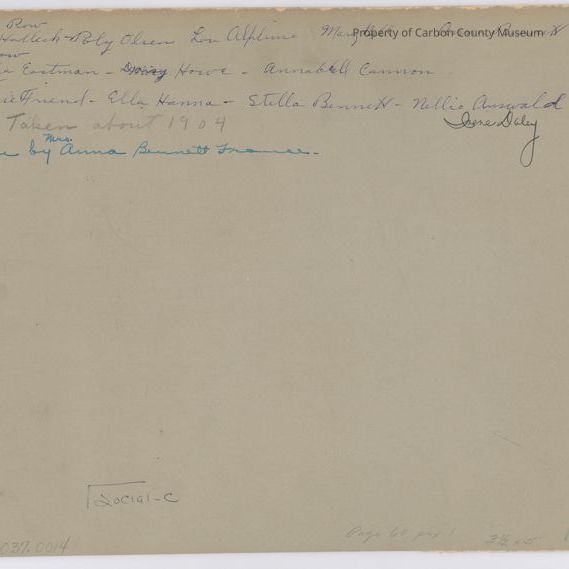 Row
Halleck - Poly Olsen Lou Alpline Mary
Property of Carbon County Museum
Eastman - Howe - Annabell Cannon
Friend - Ella Hanna - Stella Bennett - Nellie Auswald
Irene Daley
Taken about 1904
by Mrs. Anna Bennett France.
Social-C
037.0014
Page 60